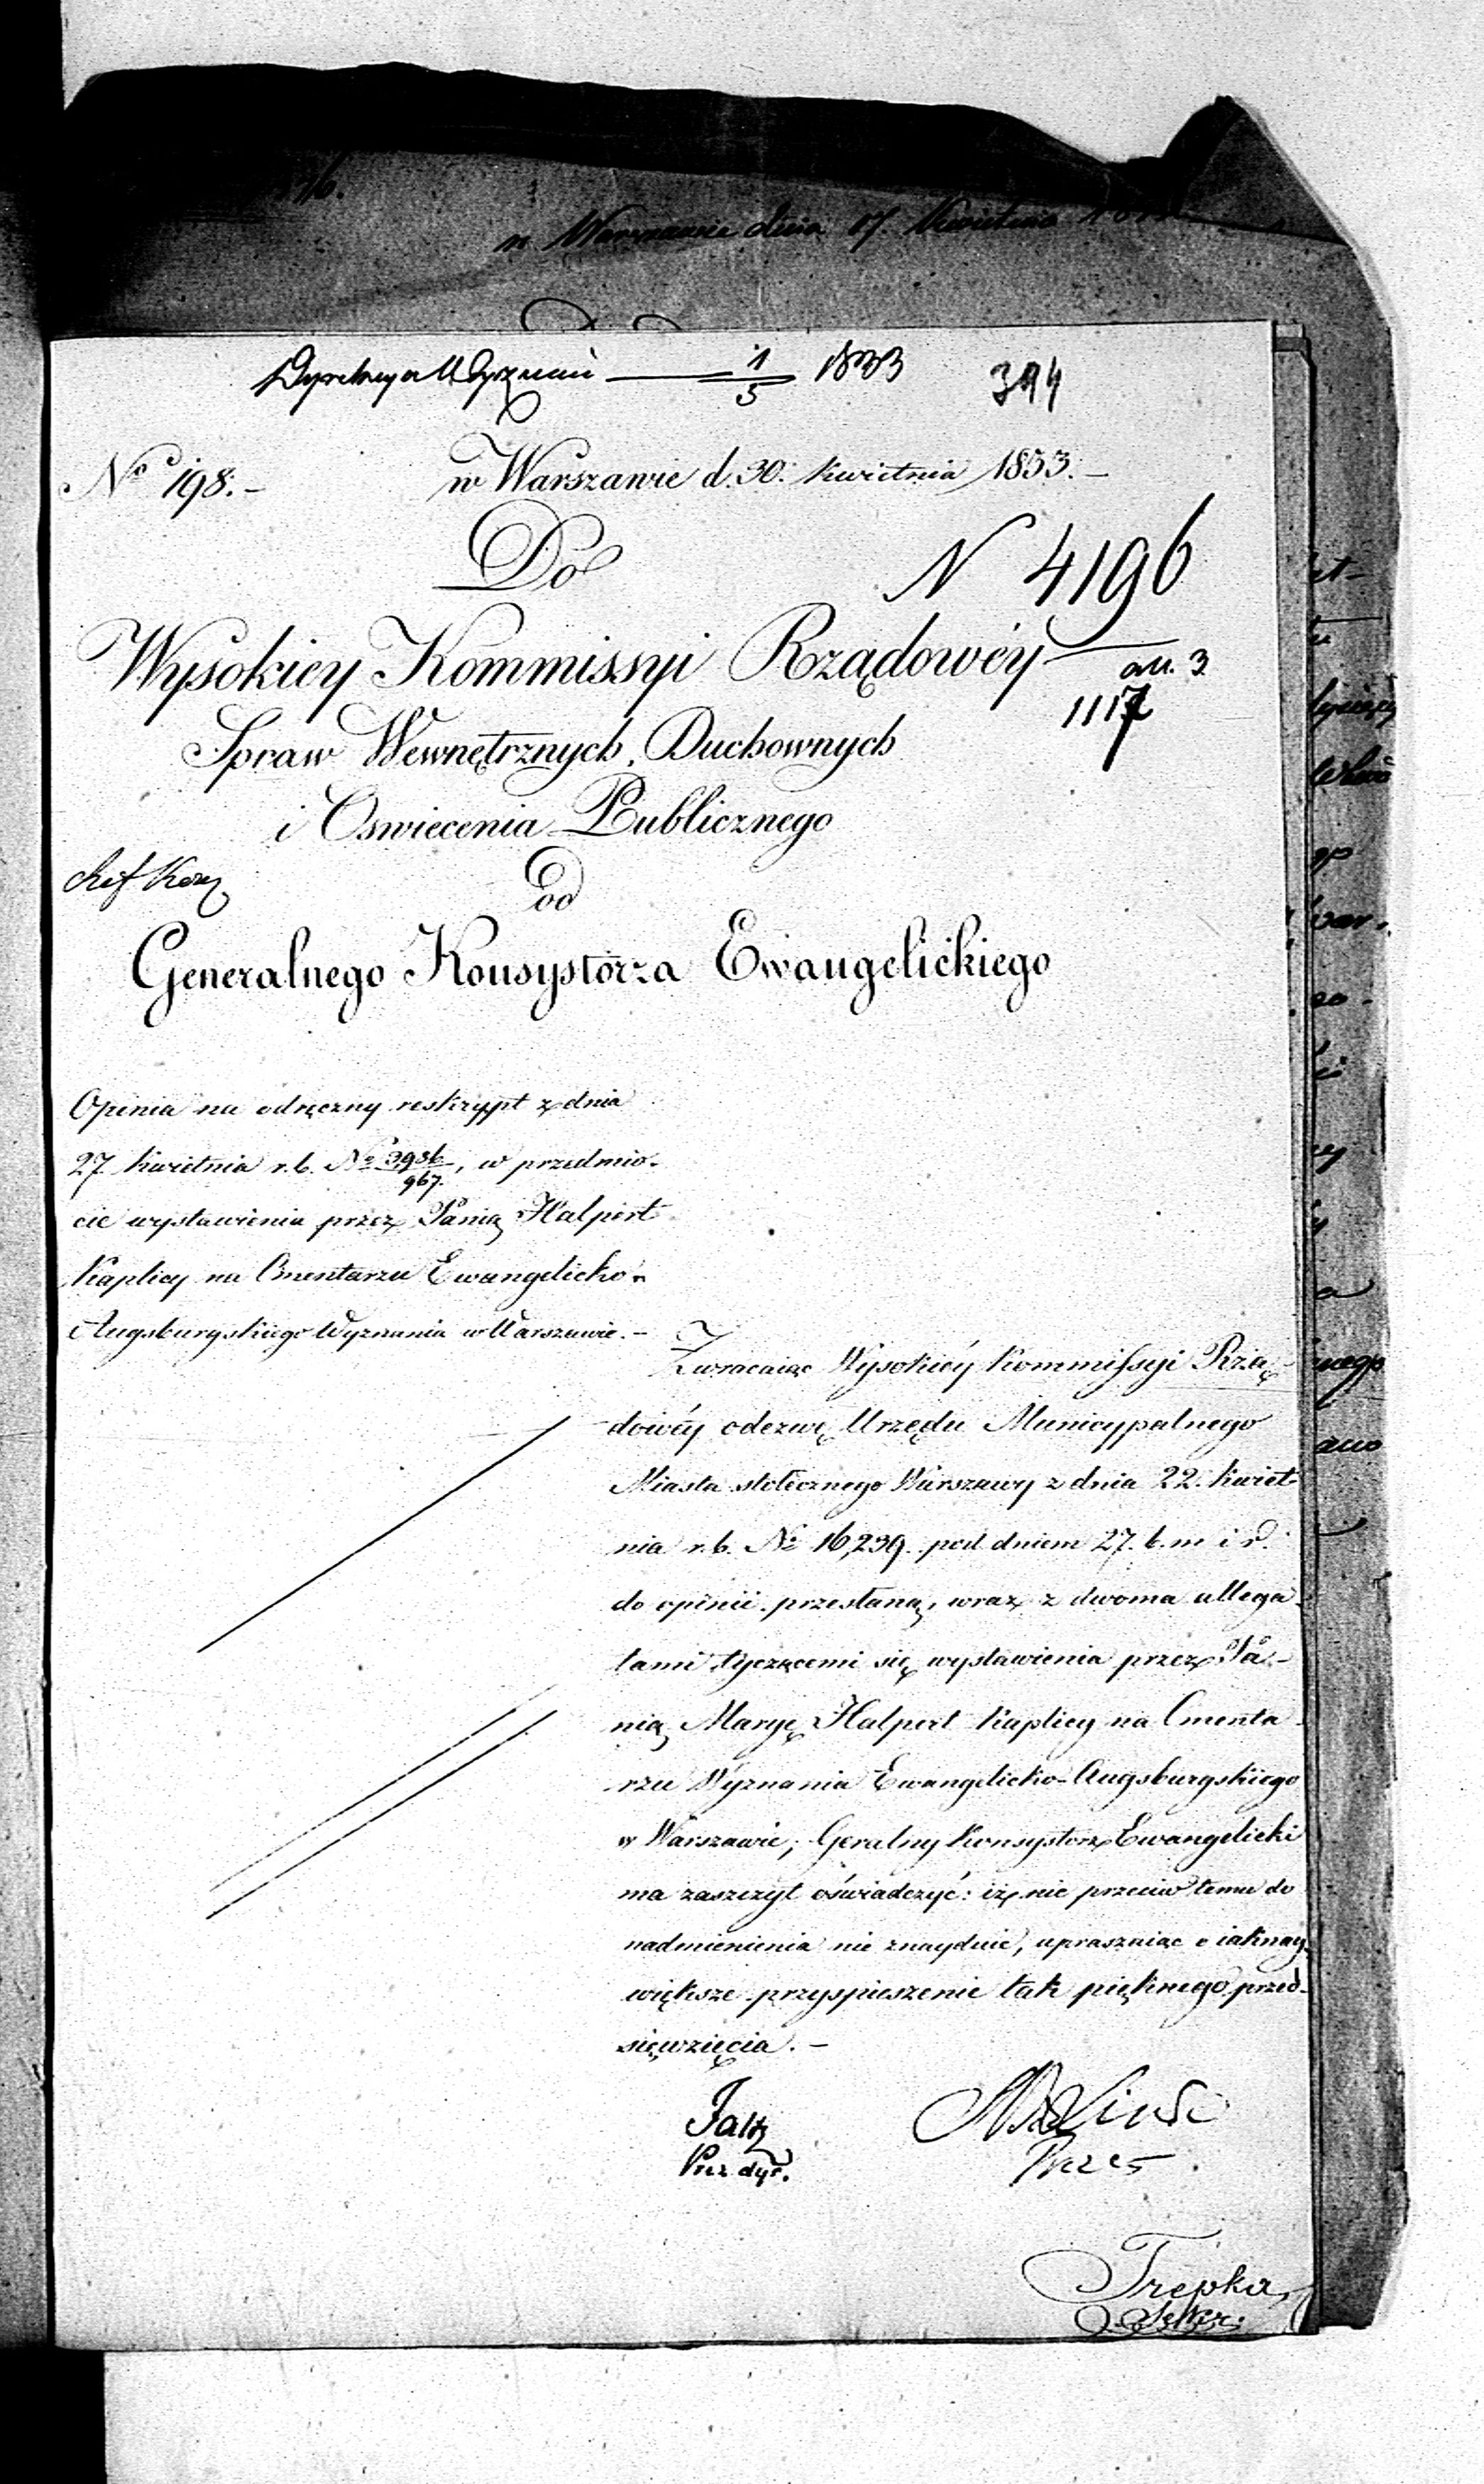 w Warszawie dnia 17. Kwietnia
Dyrekcya Wyznań 1/5 1833 394
No 198. – w Warszawie d. 30. kwietnia 1833. –
Do N 4196
Wysokiey Kommissyi Rządowéy all. 3
1117
Spraw Wewnętrznych, Duchownych
i Oswiecenia Publicznego
od
Generalnego Konsystorza Ewangelickiego
Opinia na odręczny reskrypt z dnia
27 kwietnia r. b. No 3986/967., w przedmio-
cie wystawienia przez Panią Halpert
Kaplicy na Cmentarzu Ewangelicko-
Augsburgskiego Wyznania w Warszawie. –
Zwracaiąc Wysokiéy Kommissyi Rzą-
dowéy odezwę Urzędu Municypalnego
Miasta stołecznego Warszawy z dnia 22. kwiet-
nia r. b. No 16,239. pod dniem 27. b. m i r.
do opinii przesłaną, wraz z dwoma allega-
tami tyczącemi się wystawienia przez Pa-
nią Maryę Halpert Kaplicy na Cmenta-
rzu Wyznania Ewangelicko-Augsburgskiego
w Warszawie; Geralny Konsystorz Ewangelicki
ma zaszczyt oświadczyć: iż nic przeciw temu do
nadmienienia nie znayduie, upraszaiąc o iaknay-
większe przyspieszenie tak pięknego przed-
sięwzięcia. –
Prezes.
Trepka
Sekr.